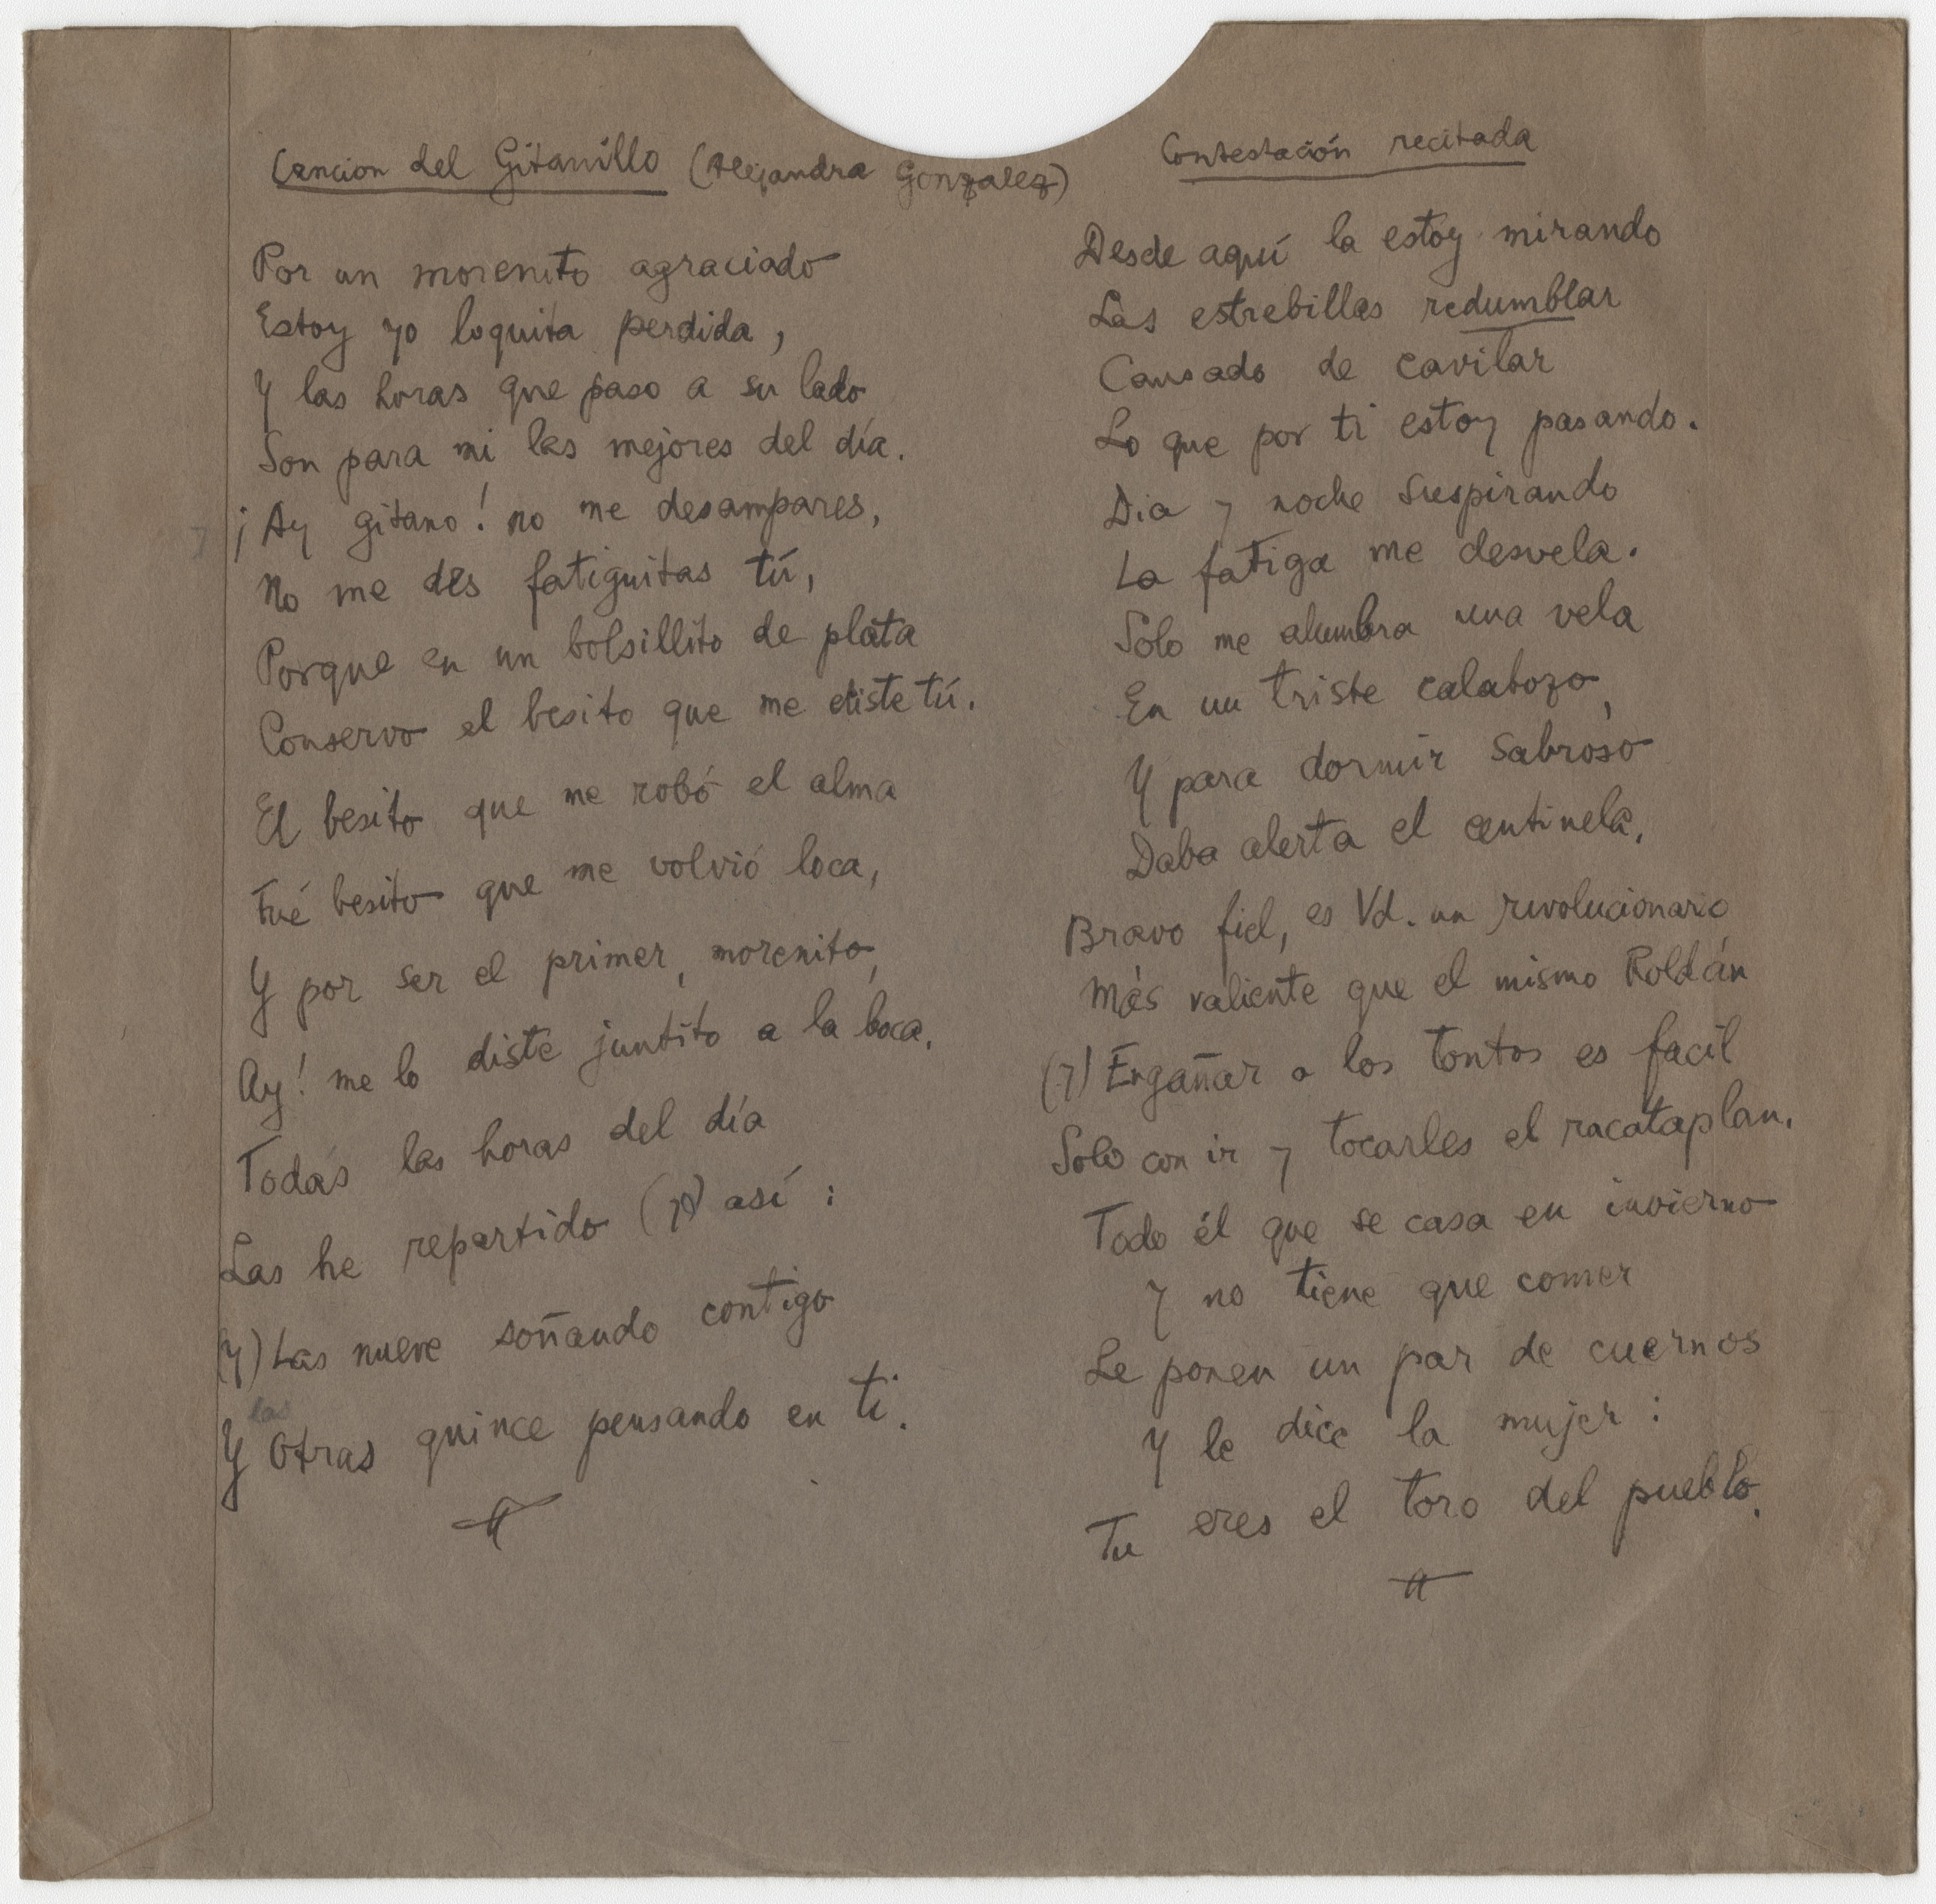 Cancion del Gitanillo (Alejandra Gonzalez)
Por un morenito agraciado
Estoy yo loquita perdida,
Y las horas que paso a su lado
Son para mi las mejores del día.
¡Ay gitano! no me desampares,
No me des fatiguitas tú,
Porque en un bolsillito de plata
Conservo el besito que me diste tú.
El besito que me robó el alma
Fué besito que me volvió loca,
Y por ser el primer, morenito,
Ay! me lo diste juntito a la boca.
Todas las horas del día
Las he repartido (yo) así:
(y) Las nueve soñando contigo
las
Y otras quince pensando en ti.
Contestación recitada
Desde aquí la estoy mirando
Las estrebillas redumblar
Cansado de cavilar
Lo que por ti estoy pasando.
Dia y noche suspirando
La fatiga me desvela.
Solo me alumbra una vela
En un triste calabozo,
Y para dormir sabroso
Daba alerta el centinela.
Bravo fiel, es Vd. un revolucionario
Más valiente que el mismo Roldán
(y) Engañar a los tontos es facil
Solo con ir y tocarles el racataplan.
Todo él que se casa en invierno
Y no tiene que comer
Le ponen un par de cuernos
Y le dice la mujer:
Tu eres el toro del pueblo.